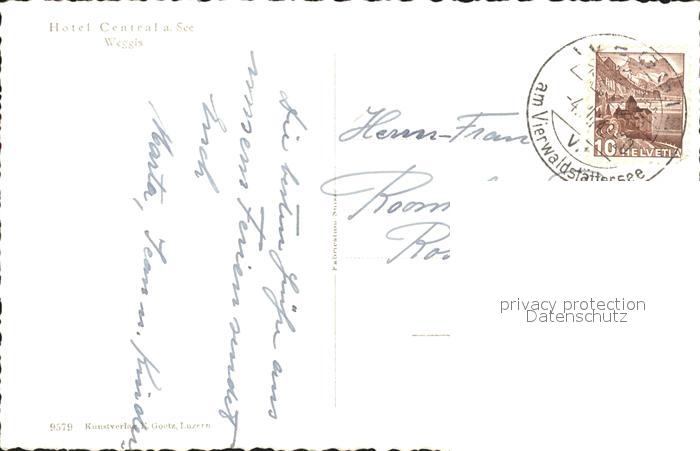 Hotel Central a. See
Weggis
Die besten Grüße aus
unsern Ferien sendet
Euch
Marta, Jean u. Kinder
Herrn-Frau
Fabrication Suisse
am Vierwaldstättersee
10 HELVETIA
privacy protection
Datenschutz
9579 Kunstverlag E. Goetz, Luzern